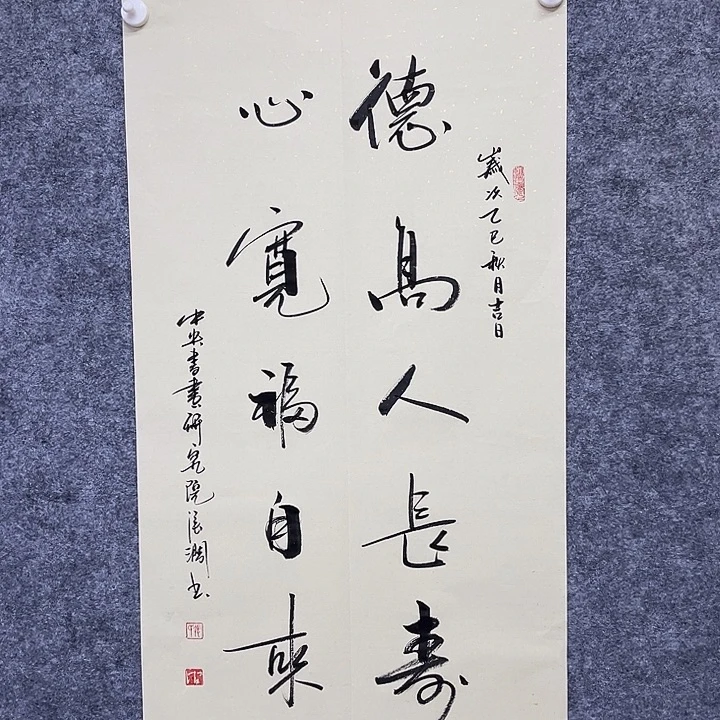 歲次乙巳秋月吉日
德高人長壽
心寬福自來
中央書畫研究院張淵书